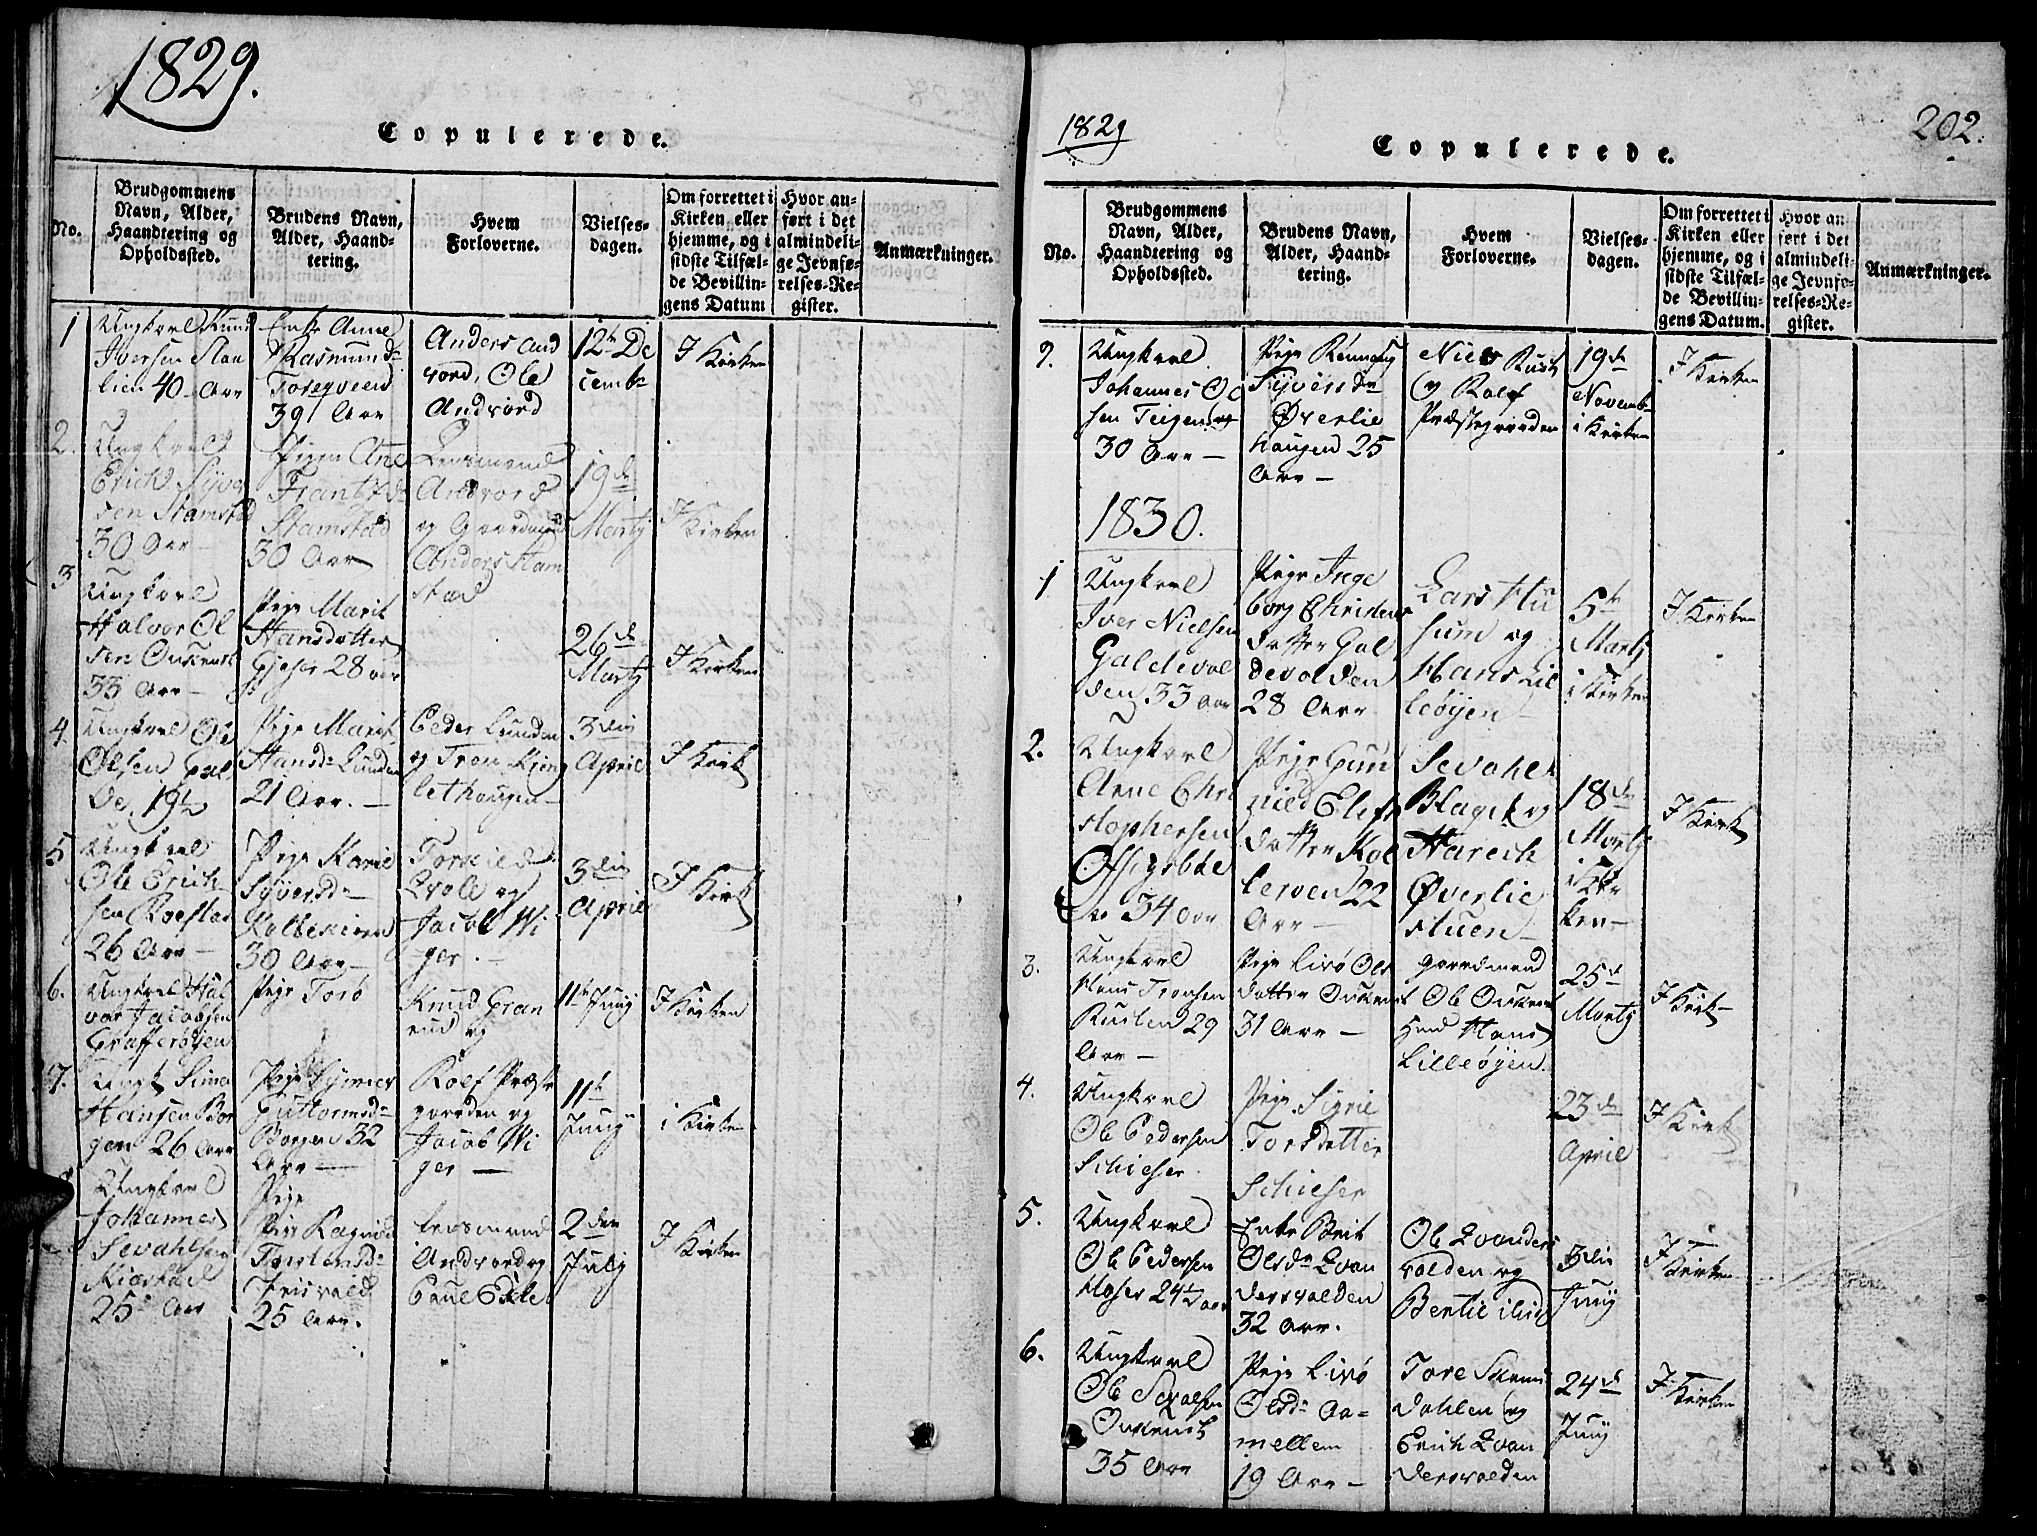 1829.
Copulerede.
No.
Brudgommens Navn, Alder, Haandtering og Opholdssted.
Brudens Navn, Alder, Haandtering.
Hvem Forloverne.
Vielses-dagen.
Om forrettet i Kirken eller hjemme, og i sidste Tilfælde Bevillingens Datum
Hvor anført i det almindelige Jevnførelses-Register.
Anmærkninger.
1
Ungkarl Knud
Iversen
40 Aar
Enke Anne
Rasmusd
39 Aar
Anders And
vord, Ole
Andvord
12te De
cembr
I Kirken
2.
Ungkarl
Erich Syver
sen Stamstad
30 Aar
Pigen Ane
Frantzd
Stamstad
30 Aar
Lensmand
Andvord
og Gaardmand
Anders Stam
stad
19de
Martz
I Kirken
3
Ungkarl
Halvor Ol
sen
33 Aar
Pige Marit
Hansdatter
28 aar
26de
Martz
I Kirken
4.
Ungkarl Ole
Olsen Gal
de, 19
Pige Marit
Hansd Lunden
21 Aar.
Peder Lunden
og Tron
lethaugen
3die
April
I Kirk
5
Ungkarl
Ole Erich
sen
26 Aar
Pige Marie
Syversd
30 Aar
Torkild
Qvale og
Jacob Wi
ger.
3die
April
I Kirk
6.
Ungkarl Hal
vor Jacobsen
Grafferøyen
Pige Torø
Knud Gran
og
11te Juny
I Kirken
7.
Ungk Simo
Hansen Bor
gen 26 Aar
Pige
Guttormsd
Borgen 32
Aar
Rolf Præste
gaarden og
Jacob Wi
ger
11te
Juny
i Kirken
8
Ungkarl
Johannes
Sevahlsen
25 Aar
Pige
Pige Ragnild
Torstensd
Frisvold
25 Aar.
Lensmand
Andvord og
Poul Eide
2den
July
I Kirken
1829
Copulerede.
202.
No.
Brudgommens Navn, Alder, Haandtering og Opholdssted.
Brudens Navn, Alder, Haandtering.
Hvem Forloverne.
Vielses-dagen.
Om forrettet i Kirken eller hjemme, og i sidste Tilfælde Bevillingens Datum.
Hvor anført i det almindelige Jevnførelses-Register.
Anmærkninger.
9.
Ungkarl
Johannes Ol
sen Teigen
30 Aar
Pige Rønnaug
Syversdr
Øverlie
haugen 25
Aar
og Rolf
Præstegaarden
19de
Novemb
i Kirken
I Kirken
1830.
1
Ungkarl
Iver Nielsen
Galdevol
den 33 Aar
Pige Inge
borg Christens
datter Gal
devolden
28 Aar
Lars Hu
sum og
Hans Lil
leøyen
5te
Martz
i Kirken
I Kirken
2.
Ungkarl
Arne Chri
stophersen
34 aar
Pige Gun
nild
datter Kol
22
Aar
Sevahl
og
Øverlie
stuen
18de
Martz
i Kir
ken
I Kirk
3.
Ungkarl
Hans Tronsen
29
Aar
Pige Livø Ols
datter
31 Aar
Gaardmand
Ole
Hans
Lilleøyen.
25de
Martz
I Kirk
4.
Ungkarl
Ole Pedersen
Pige Sigrie
Torsdatter
23de
April
I Kirk
5.
Ungkarl
Ole Pedersen
Moser 24 aar
Enke Brit
Olsdr Qvan
dersvolden
32 Aar.
Ole Qvanders
volden og
3die
Juny
I Kirken
6.
Ungkarl
Ole
35 Aar
Pige Livø
Olsdr Aa=
mellem
19 Aar
Tore
dahlen og
Erich Qvan
dersvolden
24de
Juny
I Kirken